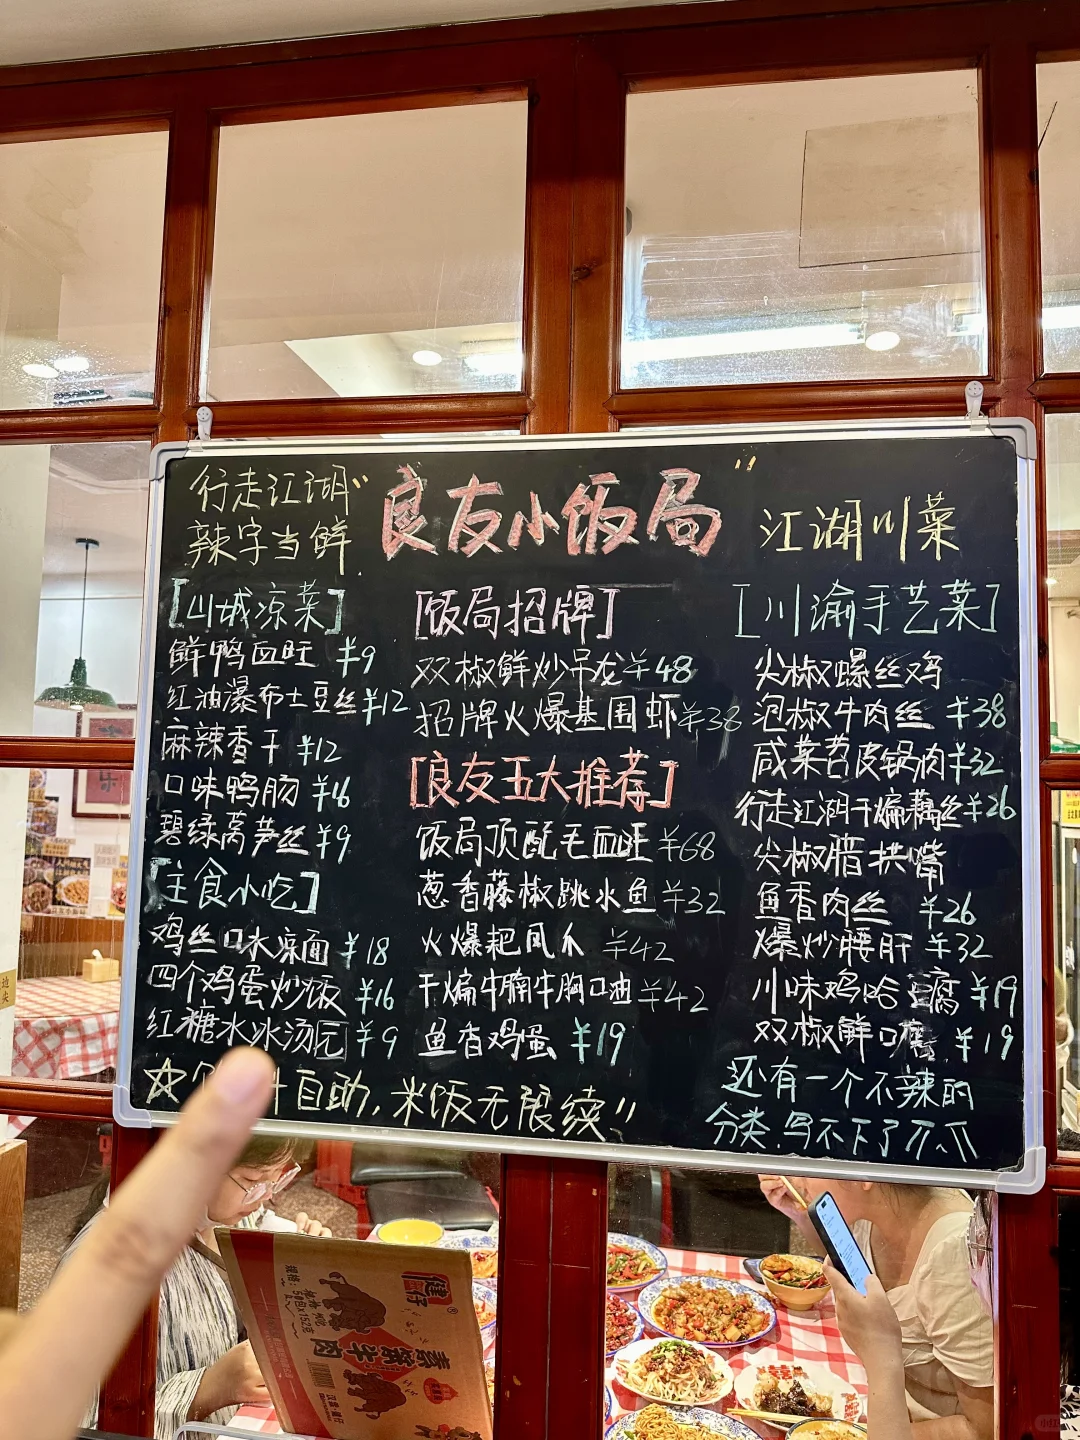 行走江湖
辣字当鲜
"良友小饭局"
江湖川菜
[山城凉菜]
鲜鸭血旺 ¥9
红油瀑布土豆丝 ¥12
麻辣香干 ¥12
口味鸭肠 ¥16
碧绿莴笋丝 ¥9
[主食小吃]
鸡丝口水凉面 ¥18
四个鸡蛋炒饭 ¥16
红糖水冰汤圆 ¥9
[饭局招牌]
双椒鲜炒吊龙 ¥48
招牌火爆基围虾 ¥38
[良友五大推荐]
饭局顶配毛血旺 ¥68
葱香藤椒跳水鱼 ¥32
火爆耙凤爪 ¥42
干煸牛腩牛胸口油 ¥42
鱼香鸡蛋 ¥19
[川渝手艺菜]
尖椒螺丝鸡
泡椒牛肉丝 ¥38
咸菜苕皮锅肉 ¥32
行走江湖干煸藕丝 ¥26
尖椒腊拱嘴
鱼香肉丝 ¥26
爆炒腰肝 ¥32
川味鸡哈豆腐 ¥19
双椒鲜口蘑 ¥19
还有一个不辣的
分类,写不下了
☆ 自助,米饭无限续!!
健仔®
素繁牛肉
规格: